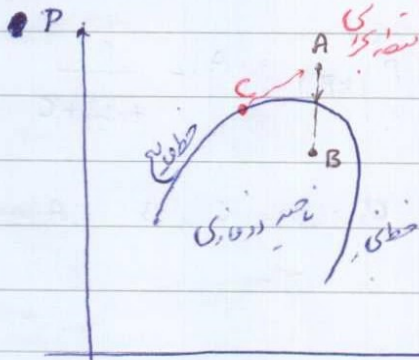 P
نقطه بحرانی
A
C
خط مایع
B
ناحیه دوفازی
خط بخار